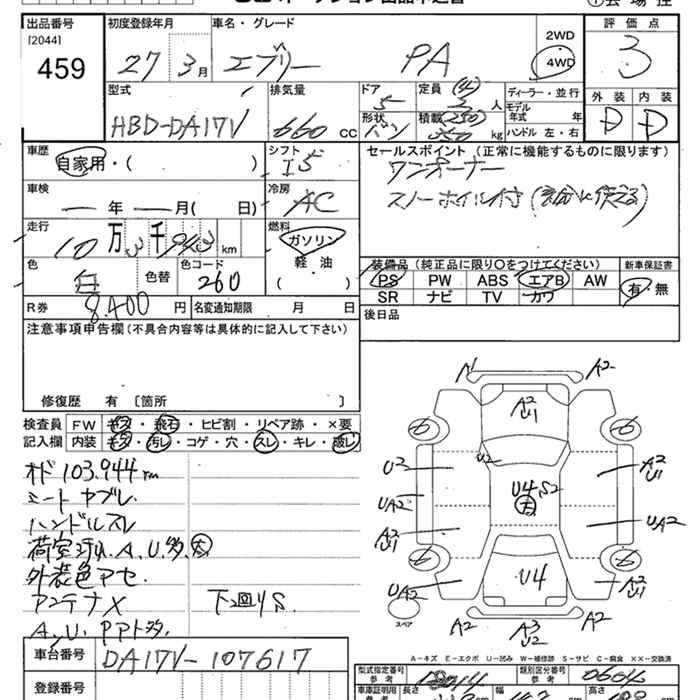 出品番号
[2044]
459
初度登録年月
27 3月
車名・グレード
エブリー PA
2WD
4WD
評価点
3
型式
HBD-DA17V
排気量
660 CC
ドア
5
形状
バン
定員 (4)
2 人
積載 (250)
350 kg
ディーラー・並行
モデル
年式 年
ハンドル 左・右
外装 内装
D D
車歴
自家用・( )
シフト
I5
車検
年 月( 日)
冷房
AC
走行
10万 3千 943 km
燃料
ガソリン
軽・油
( )
色
白
色替
色コード
260
R券 8,400 円
名変通知期限 月 日
セールスポイント (正常に機能するものに限ります)
ワンオーナー
スノーホイル付
装備品 (純正品に限り○をつけてください)
PS PW ABS エアB AW
SR ナビ TV カワ
新車保証書
有・無
後日品
注意事項申告欄(不具合内容等は具体的に記入して下さい)
修復歴 有〔箇所 〕
検査員 FW キズ・飛石・ヒビ割・リペア跡・×要
記入欄 内装 キズ・汚レ・コゲ・穴・スレ・キレ・破レ
オド 103,944 km
シート ヤブレ.
ハンドルスレ
荷室 A.U.多 大
外装色アセ.
アンテナX 下回りS
A,U PPトタ
車台番号 DA17V-107617
登録番号
A A2
A2
U1
6 6
U2
U2
A2
U1
UA2
U4 S2
大
UA2
A2
U1
6 6
UA2
U4
A2
U1
スペア
A2
A3
U2
A2
A-キズ E-エクボ U-凹み W-補修跡 S-サビ C-腐食 XX-交換済
型式指定番号
参考
類別区分番号
参考
車庫証明用
参考
長さ 幅 高さ